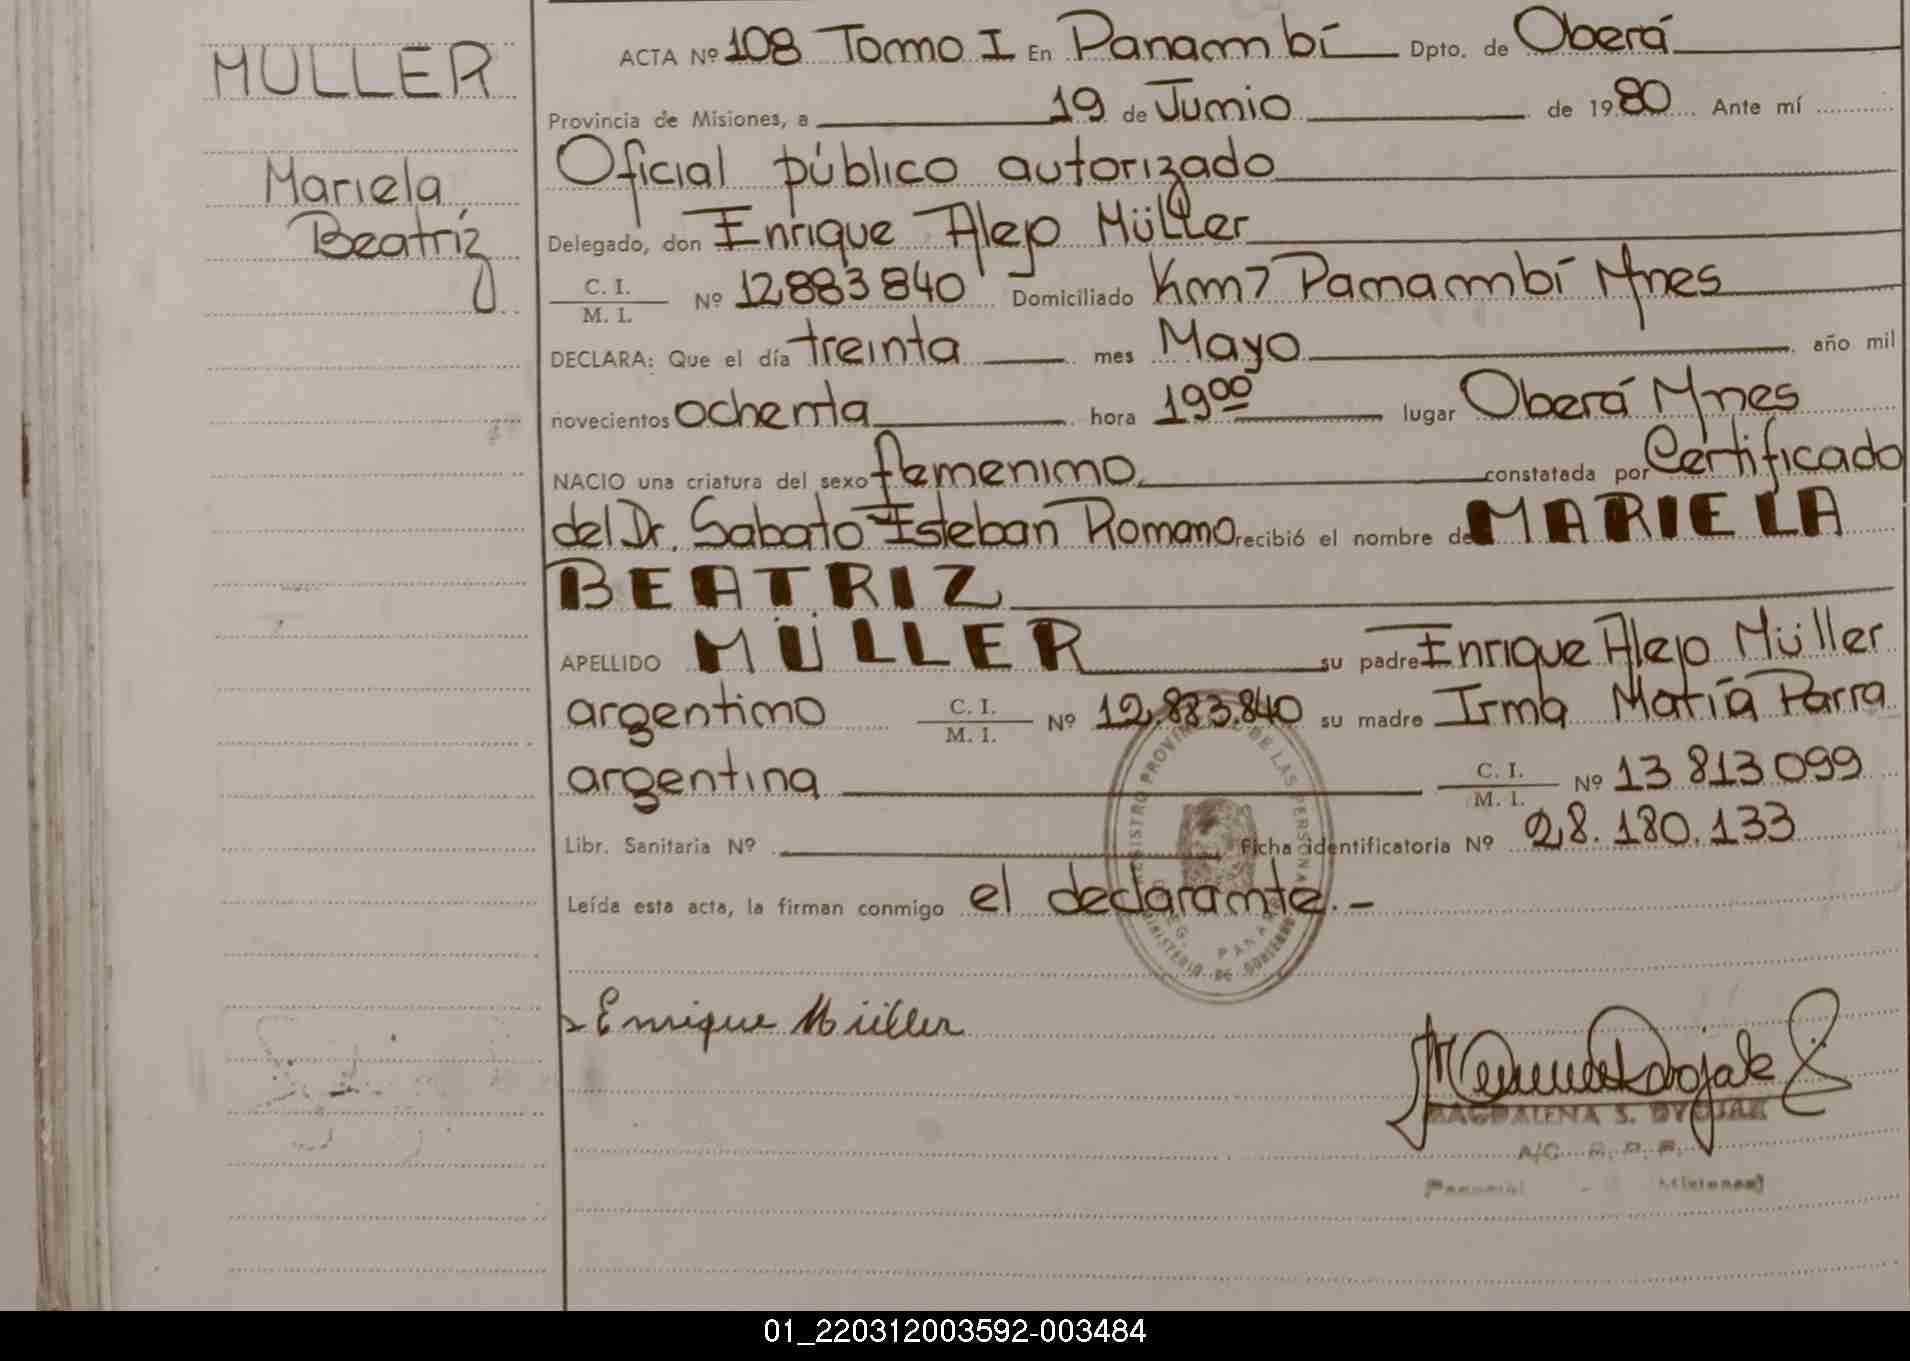 MULLER
Mariela
Beatríz
ACTA Nº 108 Tomo I En Panambí Dpto. de Oberá
Provincia de Misiones, a 19 de Junio de 1980 Ante mí
Oficial público autorizado
Delegado, don Enrique Alejo Müller
C. I.
M. I. Nº 12883840 Domiciliado Km7 Panambí Mnes
DECLARA: Que el día treinta mes Mayo año mil
novecientos ochenta hora 19 00 lugar Oberá Mnes
NACIO una criatura del sexo femenino constatada por Certificado
del Dr. Sabato Esteban Romano recibió el nombre de MARIELA
BEATRIZ
APELLIDO MÜLLER su padre Enrique Alejo Müller
argentino C. I. M. I. Nº 12.883.840 su madre Irma María Parra
argentina C. I. M. I. Nº 13 813 099
Libr. Sanitaria Nº Ficha identificatoria Nº 28.180.133
Leída esta acta, la firman conmigo el declarante.-
REGISTRO PROVINCIAL DE LAS PERSONAS
MINISTERIO DE GOBIERNO
Enrique Müller
MAGDALENA S. DYOJAK
A/C R. P. P.
(Panambí - Misiones)
01_220312003592-003484